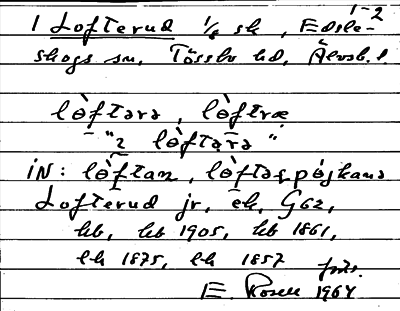 1-2
1 Lofterud 1/8 sk, Edsle-
skogs sn, Tössbo hd, Älvsb. l.
lòftərə, lòftræ
"2 lòftərə"
iN: lòftan, lòftəs pójkanə
Lofterud jr, ek, G62,
hb, hb 1905, hb 1861,
lk 1875, lk 1857
E. Rosell 1964